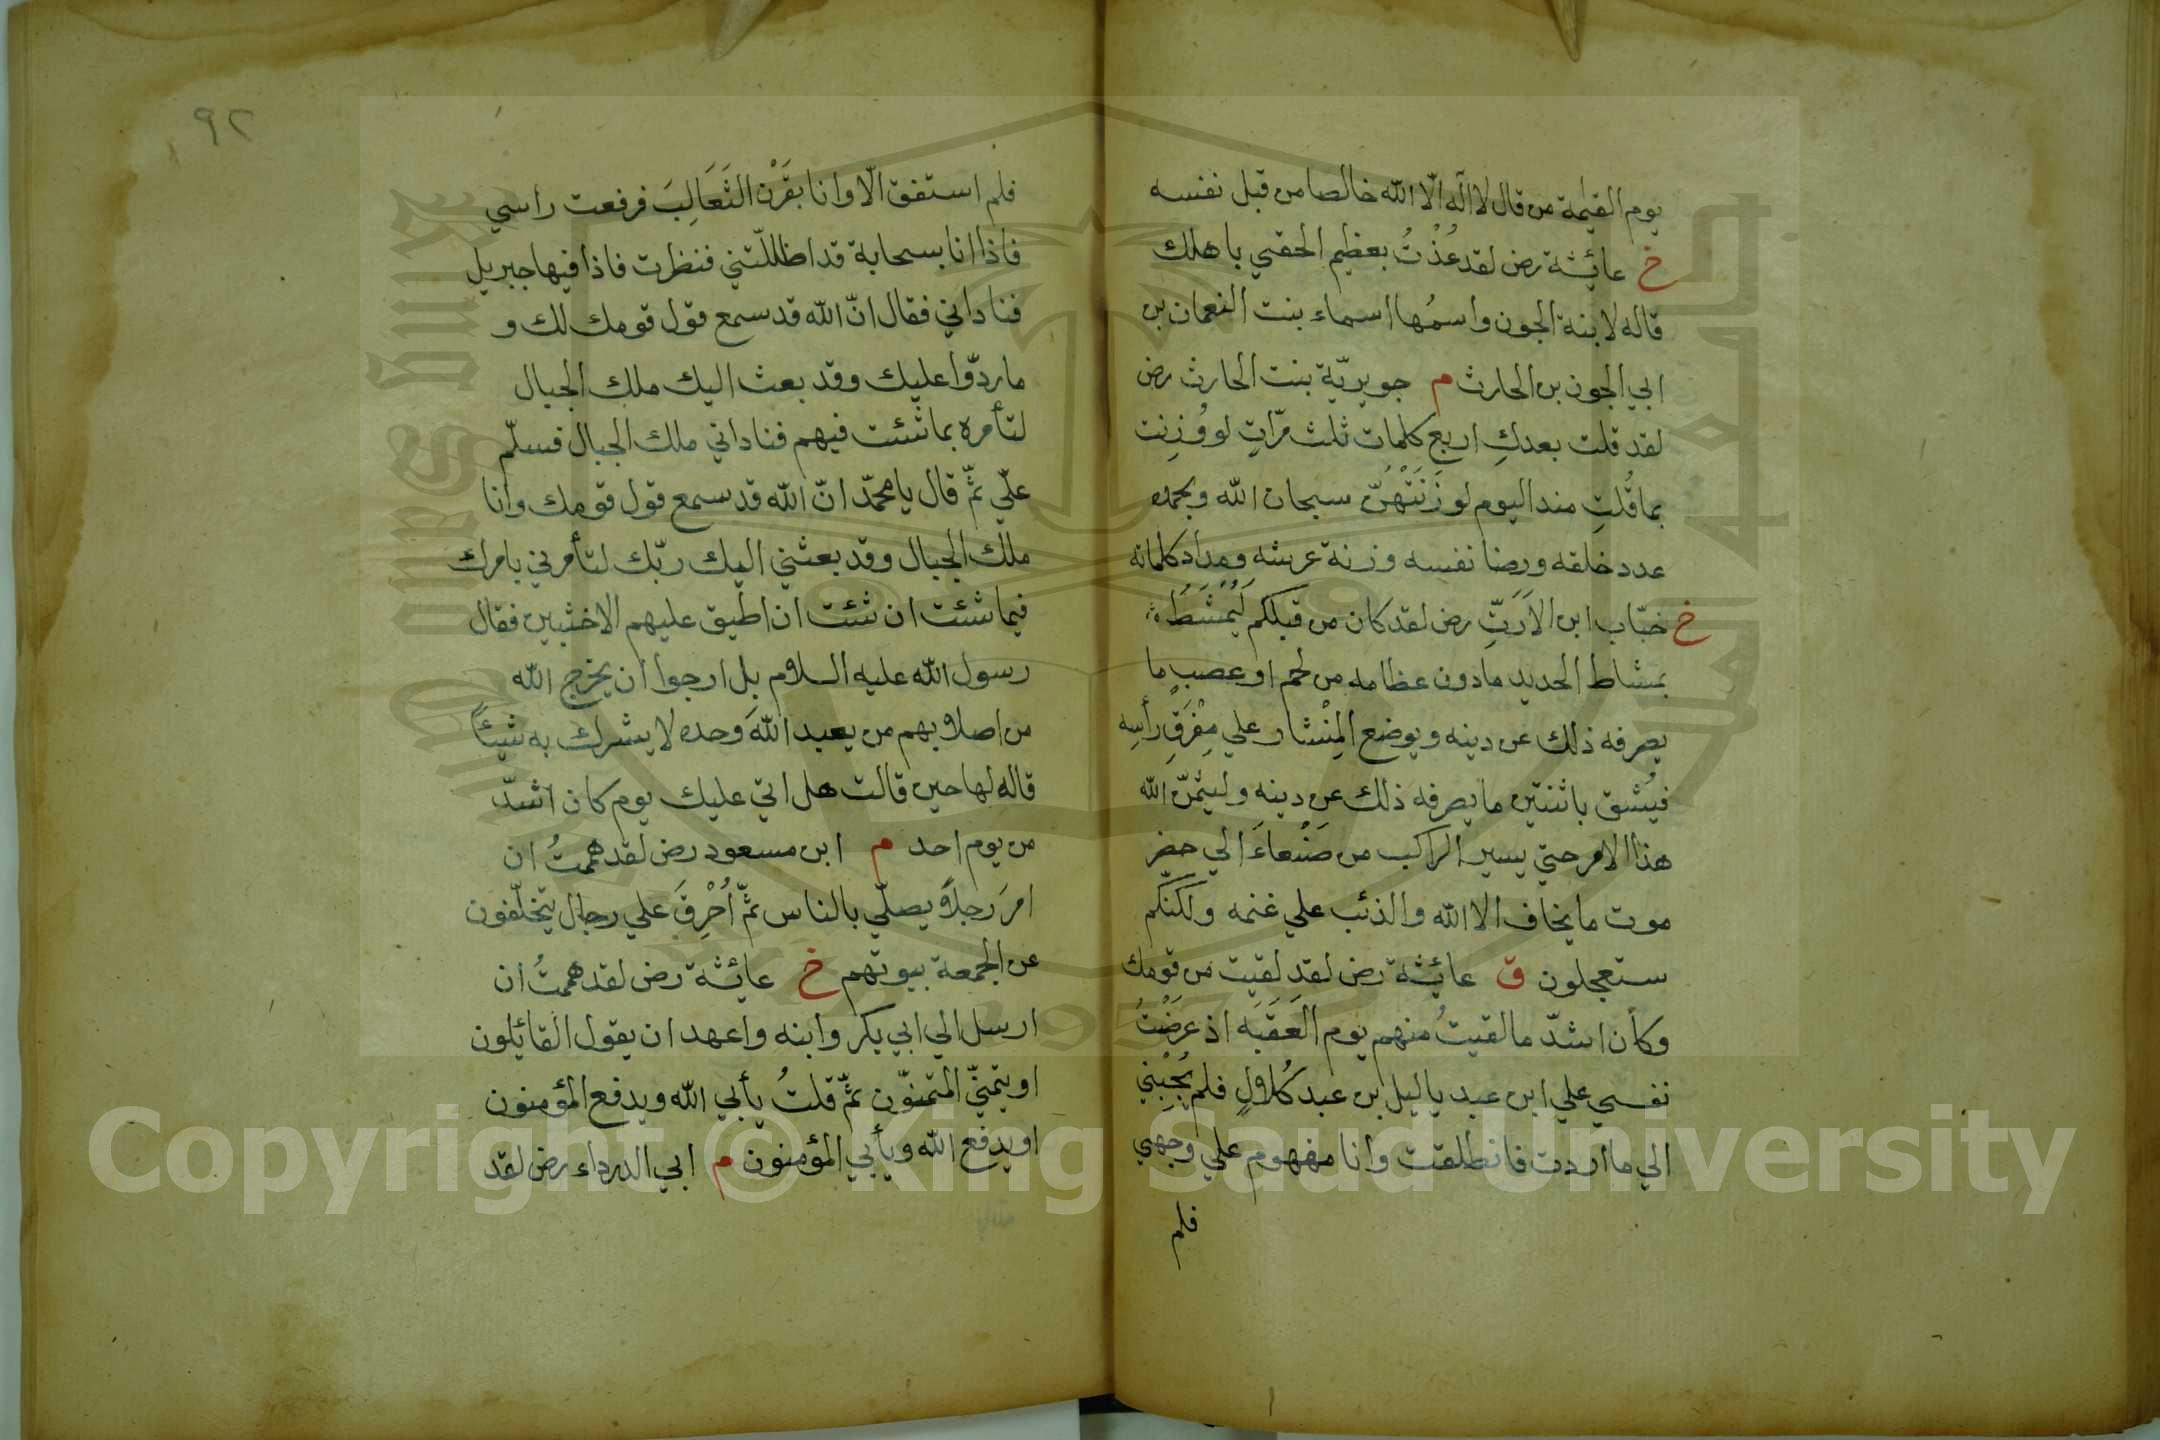 يوم القيمة من قال لا اله الا الله خالصا من قبل نفسه
خ عائشة رض لقد عُذْتُ بعظيم الحقي باهلك
قاله لابنة الجون واسمُها اسماء بنت النعمان بن
ابي الجون بن الحارث م جويريّة بنت الحارث رض
لقد قلت بعدكِ اربع كلمات ثلث مرّاتٍ لو وُزِنت
بما قُلتِ منذ اليوم لوَزَنَتْهُنّ سبحان الله وبحمده
عدد خلقه ورضا نفسه وزنة عرشه ومداد كلماته
خ خبّاب ابن الاَرَتِّ رض لقد كان من قبلكم لَيُمْشَطُ
بمشاط الحديد ما دون عظامه من لحم او عصب ما
يصرفه ذلك عن دينه ويوضع المِنْشار علي مِفْرَقِ رأسِه
فيُشق باثنتين ما يصرفه ذلك عن دينه وليتمّنّ الله
هذا الامر حتي يسير الراكب من صَنْعاءَ الي حضر
موت ما يخاف الا الله والذئب علي غنمه ولكنّكم
ستعجلون ق عائشة رض لقد لقيت من قومك
وكان اشدّ ما لقيتُ منهم يوم العَقَبَه اذ عرَضْتُ
نفسي علي ابن عبد ياليل بن عبد كُلاولٍ فلم يُجِبْنِي
الي ما اردت فانطلقت وانا مهموم علي وجهي
فلم
٩٢
فلم استفق الّا وانا بقَرْن الثَعَالِبَ فرفعت راسي
فاذا انا بسحابة قد اظللّتني فنظرت فاذا فيها جبريل
فناداني فقال انّ الله قد سمع قول قومك لك و
ما ردّوا عليك وقد بعث اليك ملك الجبال
لتأمره بما شئت فيهم فناداني ملك الجبال فسلّم
علّي ثمّ قال يا محمّد انّ الله قد سمع قول قومك وانا
ملك الجبال وقد بعثني اليك ربّك لتأمرني بامرك
فيما شئت ان شئت ان اطبق عليهم الاخشبين فقال
رسول الله عليه السلام بل ارجوا ان يخرج الله
من اصلابهم من يعبد اللهَ وحده لا يشرك به شيئًا
قاله لها حين قالت هل اتي عليك يوم كان اشدّ
من يوم احد م ابن مسعود رض لقد هممتُ ان
امرَ رجلاً يصلّي بالناس ثمّ اُحْرِقَ علي رجال يتخلّفون
عن الجمعة بيوتهم خ عائشة رض لقد هممتُ ان
ارسل الي ابي بكر وابنه واعهد ان يقول القائلون
او يتمنّي المتمنوّن ثمّ قلتُ يأبي الله ويدفع المؤمنون
او يدفع الله ويأبي المؤمنون م ابي الدرداء رض لقد
Copyright © King Saud University